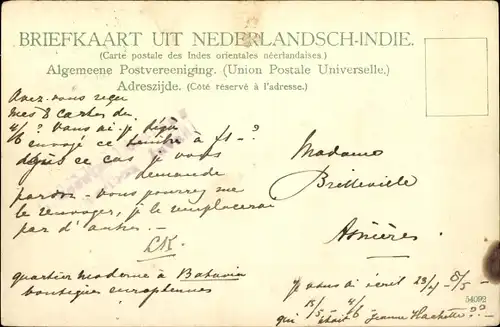 BRIEFKAART UIT NEDERLANDSCH-INDIE.
(Carte postale des Indes orientales néerlandaises.)
Algemeene Postvereeniging. (Union Postale Universelle.)
Adreszijde. (Côté réservé à l'adresse.)
Avez-vous reçu
mes 8 cartes du
4/6 ? Vous ai-je déjà
envoyé ce timbre à f1 — ?
dans ce cas je vous
demande
pardon - vous pourrez me
le renvoyer, je le remplacerai
par d'autres. —
LK.
quartier moderne à Batavia
boutiques européennes
Madame
Bretteville
Asnières.
je vous ai écrit 23/4 - 8/5 -
15/5 4/6
qui était Jeanne Hachette??
54092